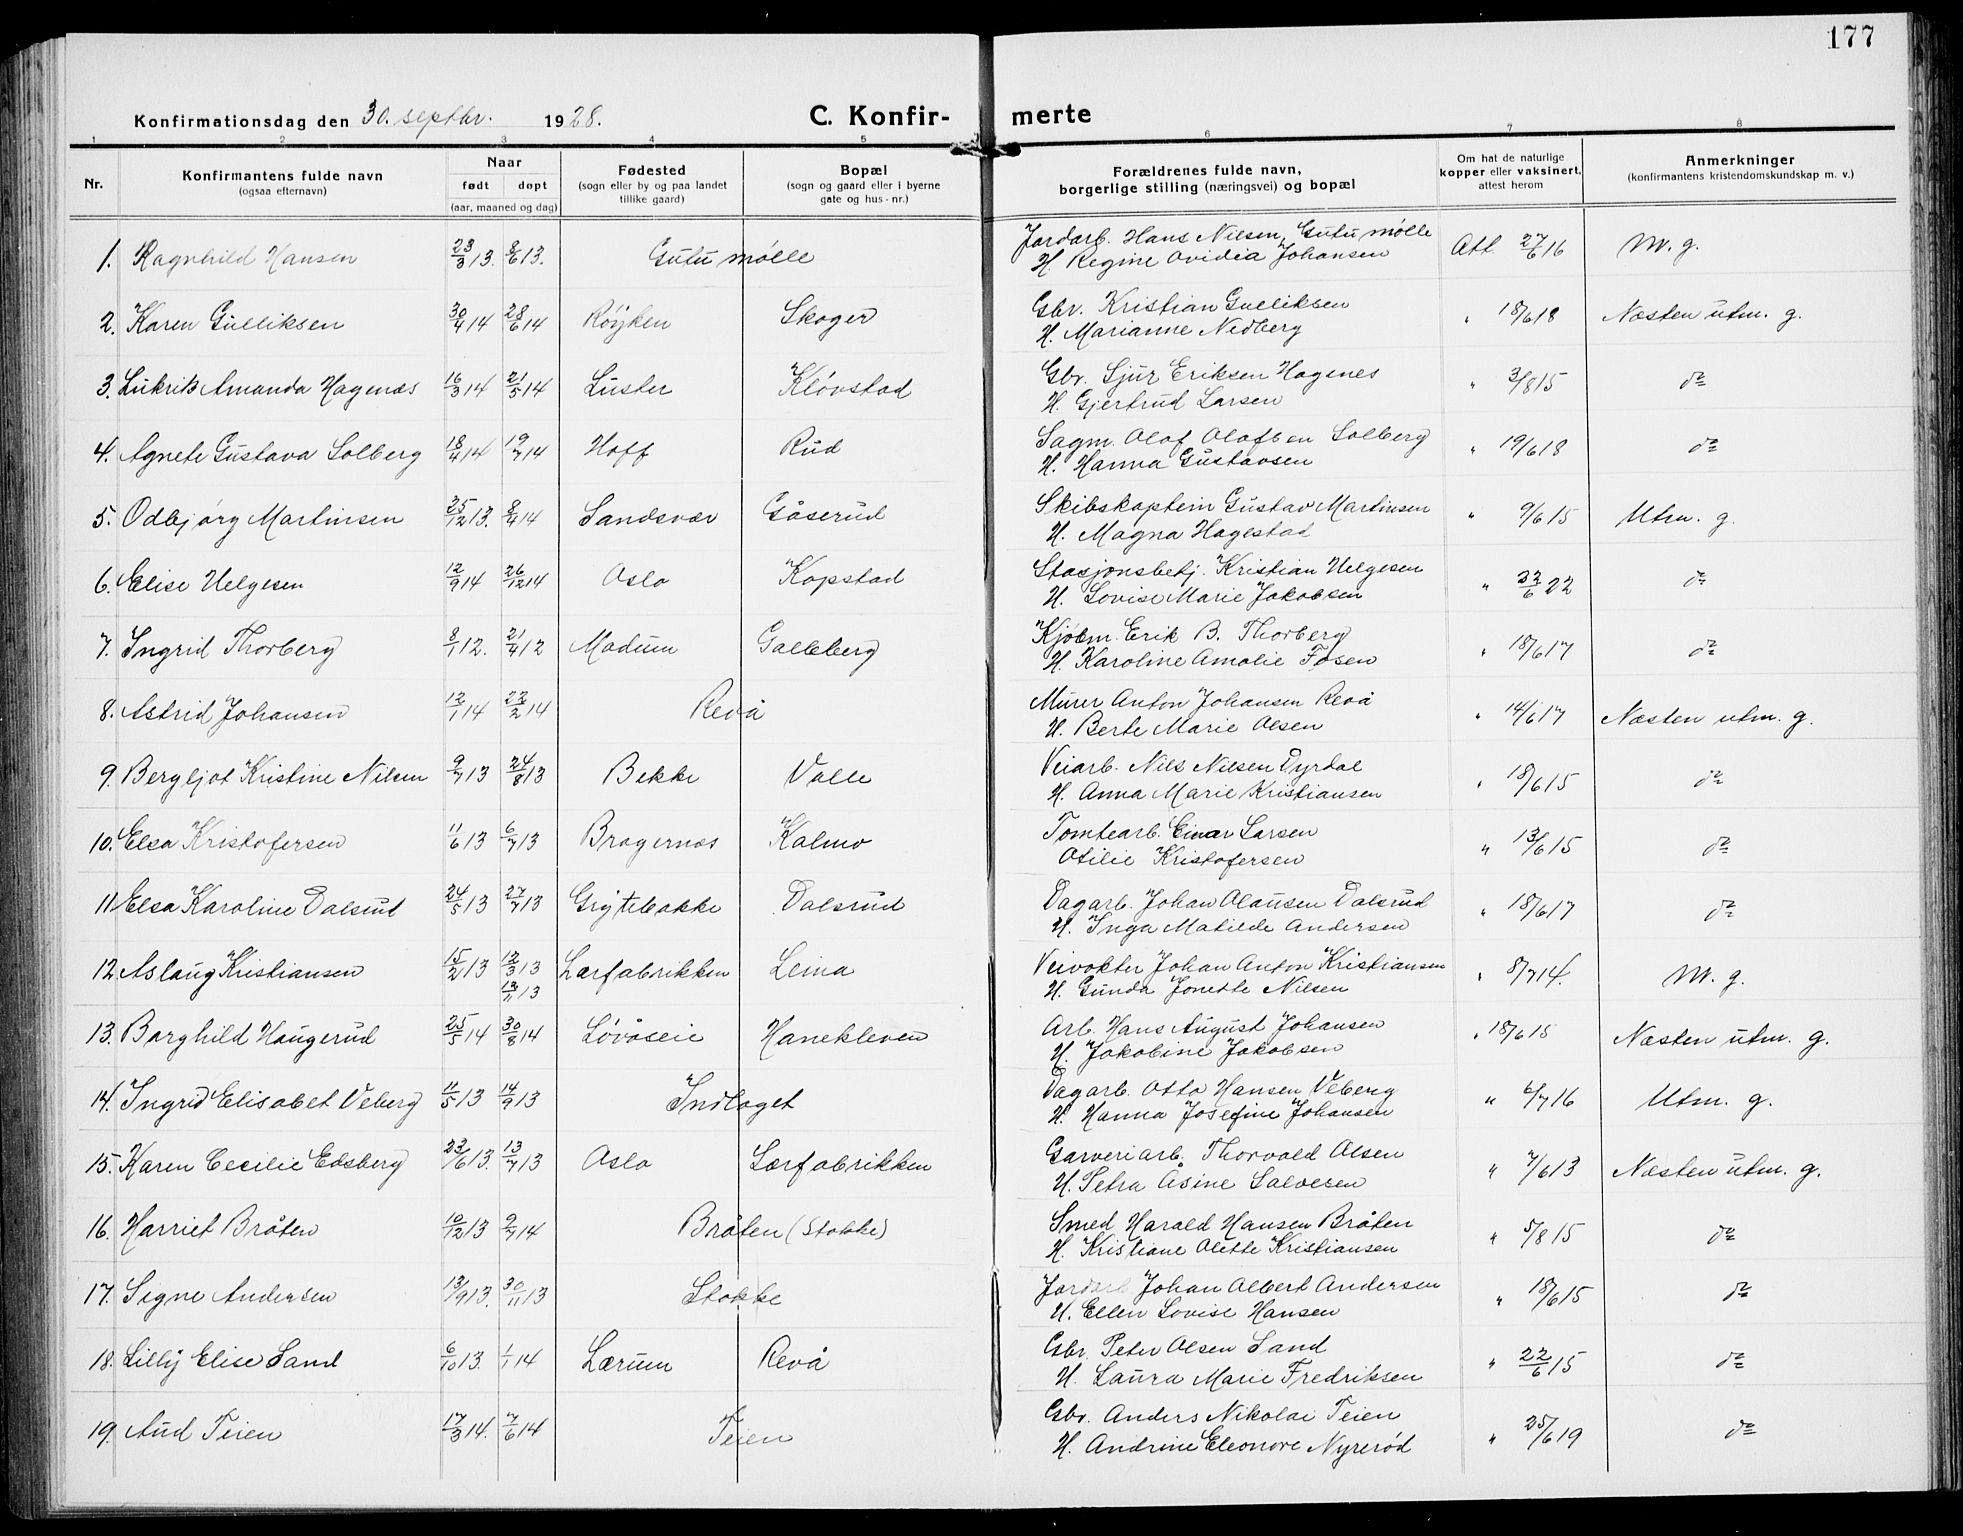 177
Konfirmationsdag den 30. septbr. 1928. C. Konfir- merte
1 2 3 4 5 6 7 8
Nr. Konfirmantens fulde navn (ogsaa efternavn) Naar født døpt (aar, maaned og dag) Fødested (sogn eller by og paa landet tillike gaard) Bopæl (sogn og gaard eller i byerne gate og hus-nr.) Forældrenes fulde navn, borgerlige stilling (næringsvei) og bopæl Om hat de naturlige kopper eller vaksinert, attest herom Anmerkninger (konfirmantens kristendomskundskap m. v.)
1. Ragnhild Hansen 23/3 13. 8/6 13. Gutu mølle Jordarb. Hans Nilsen, Gutu mølle Att. 27/6 16 M. g.
H. Regine Ovidia Johansen
2. Karen Gulliksen 30/4 14 28/6 14 Røyken Skoger Gbr. Kristian Gulliksen " 18/6 18 Næsten utm. g.
H. Marianne Nedberg
3. Lukris Amanda Hagenæs 16/3 14 21/5 14 Luster Kløvstad Gbr. Sjur Eriksen Hagenes " 3/8 15 do
H. Gjertrud Larsen
4. Agnete Gustava Solberg 18/4 14 19/7 14 Hoff Rud Sagm. Olaf Olafsen Solberg " 19/6 18 do
H. Hanna Gustavsen
5. Odbjørg Martinsen 25/12 13. 8/4 14 Sandsvær Gåserud Skibskaptein Gustav Martinsen " 9/6 15 Utm. g.
H. Magna Hagestad
6. Elise Helgesen 12/9 14 26/12 14 Oslo Kopstad Stasjonsbetj. Kristian Helgesen " 22/6 22 do
H. Lovise Marie Jakobsen
7. Ingrid Thorberg 8/1 12. 21/4 12 Modum Galleberg Kjøbm. Erik B. Thorberg " 18/6 17 do
H. Karoline Amalie Fosen
8. Astrid Johansen 12/1 14 22/2 14 Revå Murer Anton Johansen Revå " 14/6 17 Næsten utm. g.
H. Berte Marie Olsen
9. Bergljot Kristine Nilsen 9/7 13 24/8 13 Bekke Valle Veiarb. Nils Nilsen Dyrdal " 18/6 15 do
H. Anna Marie Kristiansen
10. Elsa Kristofersen 11/6 13 6/7 13 Bragernæs Kalmo Tomtearb. Einar Larsen " 13/6 15 do
Otilie Kristofersen
11. Elsa Karoline Dalsrud 24/5 13 27/7 13 Grytebakke Dalsrud Dagarb. Johan Olausen Dalsrud " 18/6 17 do
H. Inga Matilde Andersen
12. Aslaug Kristiansen 15/2 13 12/3 13 Lærfabrikken Leina Veivokter Johan Anton Kristiansen " 8/7 14. M. g.
13/11 13 H. Gunda Jonette Nilsen
13. Borghild Haugerud 25/5 14 30/8 14 Løvåseie Hanekleven Arb. Hans August Johansen " 18/6 15 Næsten utm. g.
H. Jakobine Jakobsen
14. Ingrid Elisabet Veberg 11/5 13 14/9 13 Indlaget Dagarb. Otto Hansen Veberg " 6/7 16 Utm. g.
H. Hanna Josefine Johansen
15. Karen Cecilie Edsberg 23/6 13. 13/7 13 Oslo Lærfabrikken Garveriarb. Thorvald Olsen " 7/6 13 Næsten utm. g.
H. Petra Åsine Salvesen
16. Harriet Bråten 10/12 13 9/7 14 Bråten (Stokke) Smed Harald Hansen Bråten " 5/8 15 do
H. Kristiane Olette Kristiansen
17. Signe Andersen 13/9 13. 30/11 13 Stokke Jordarb. Johan Albert Andersen " 18/6 15 do
H. Ellen Lovise Hansen
18. Lilly Elise Sand 6/10 13. 1/1 14 Lærum Revå Gbr. Peter Olsen Sand " 22/6 15 do
H. Laura Marie Fredriksen
19. Aud Teien 17/3 14. 7/6 14 Teien Gbr. Anders Nikolai Teien " 25/6 19 do
H. Andrine Eleonore Nyrerød